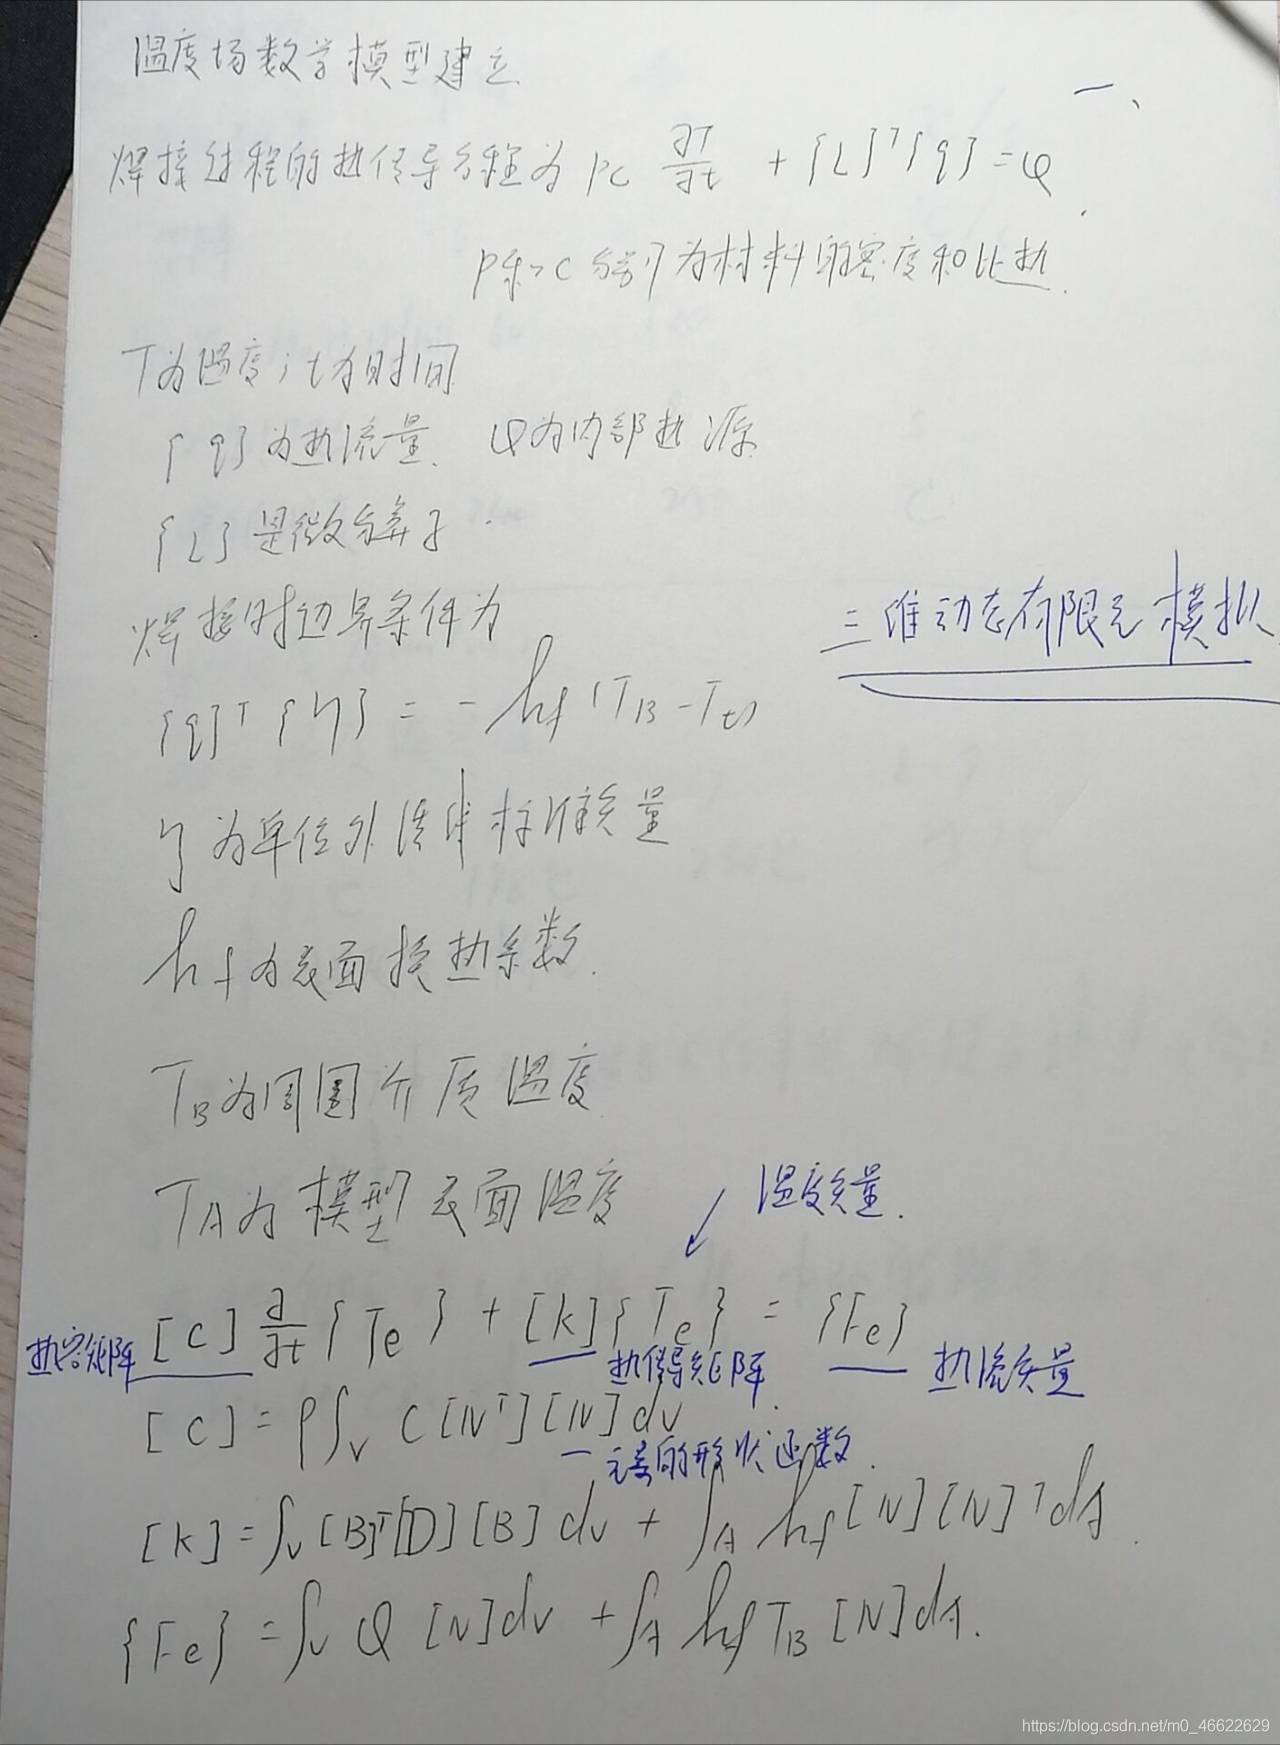 温度场数学模型建立
一、
焊接过程的热传导方程为 ρc ∂T/∂t + {L}ᵀ{q} = φ
ρ和c分别为材料的密度和比热.
T为温度;t为时间
{q}为热流量、φ为内部热源
{L}是微分算子.
焊接时边界条件为
三维动态有限元模拟
{q}ᵀ{η} = -hf(TB-Tt)
η为单位外法线标准矢量
hf为表面换热系数.
TB为周围介质温度
TA为模型表面温度
温度矢量.
[C] ∂/∂t {Te} + [k]{Te} = {Fe}
热容矩阵
热传导矩阵
热流矢量
[C] = ρ∫v C[Nᵀ][N]dv
一元素的形状函数.
[k] = ∫v [B]ᵀ[D][B]dv + ∫A hf[N][N]ᵀdA.
{Fe} = ∫v Q[N]dv + ∫A hfTB[N]dA.
https://blog.csdn.net/m0_46622629